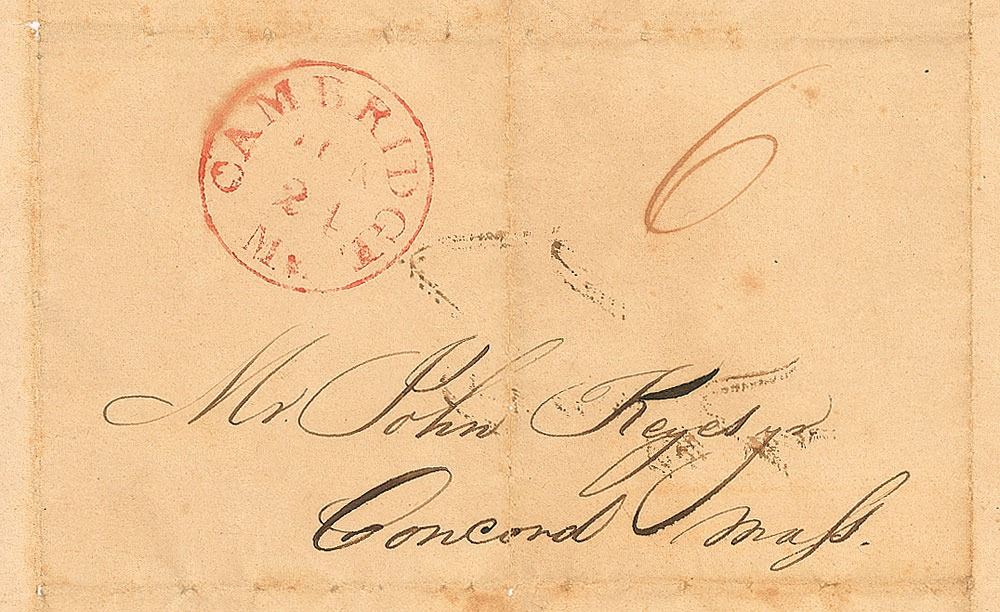 CAMBRIDGE
24
6
Mr. John Keyes jr
Concord Mass.